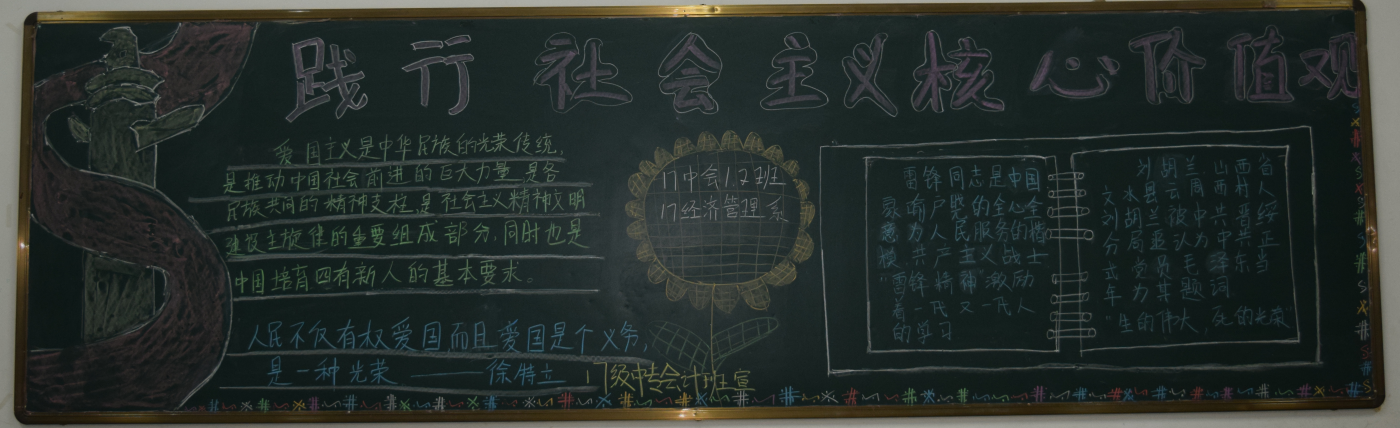 践行社会主义核心价值观
爱国主义是中华民族的光荣传统,
是推动中国社会前进的巨大力量是各
民族共同的精神支柱,是社会主义精神文明
建设主旋律的重要组成部分,同时也是
中国培育四有新人的基本要求。
人民不仅有权爱国而且爱国是个义务,
是一种光荣——徐特立
17中会1.7班班
17经济管理系
17级中专会计班宣
雷锋同志是中国
家喻户晓的全心全
意为人民服务的楷
模,共产主义战士
“雷锋精神”激励
着一代又一代人
的学习
刘胡兰山西省
文水县云周西村人
刘胡兰被中共晋绥
分局追认为中共正
式党员毛泽东当
年为其题词
“生的伟大,死的光荣”